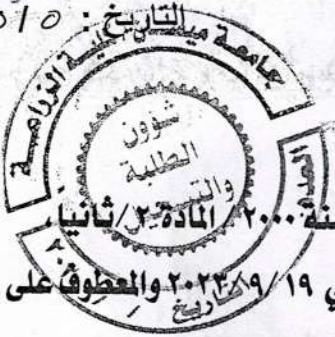 التاريخ :
جامعة ميسان كلية الزراعة
شؤون
الطلبة
والتسجيل
لسنة ٢٠٠٠ / المادة ٢/ ثانيا
في ٢٠٢٣/٩/١٩ والمعطوف على
تاريخ